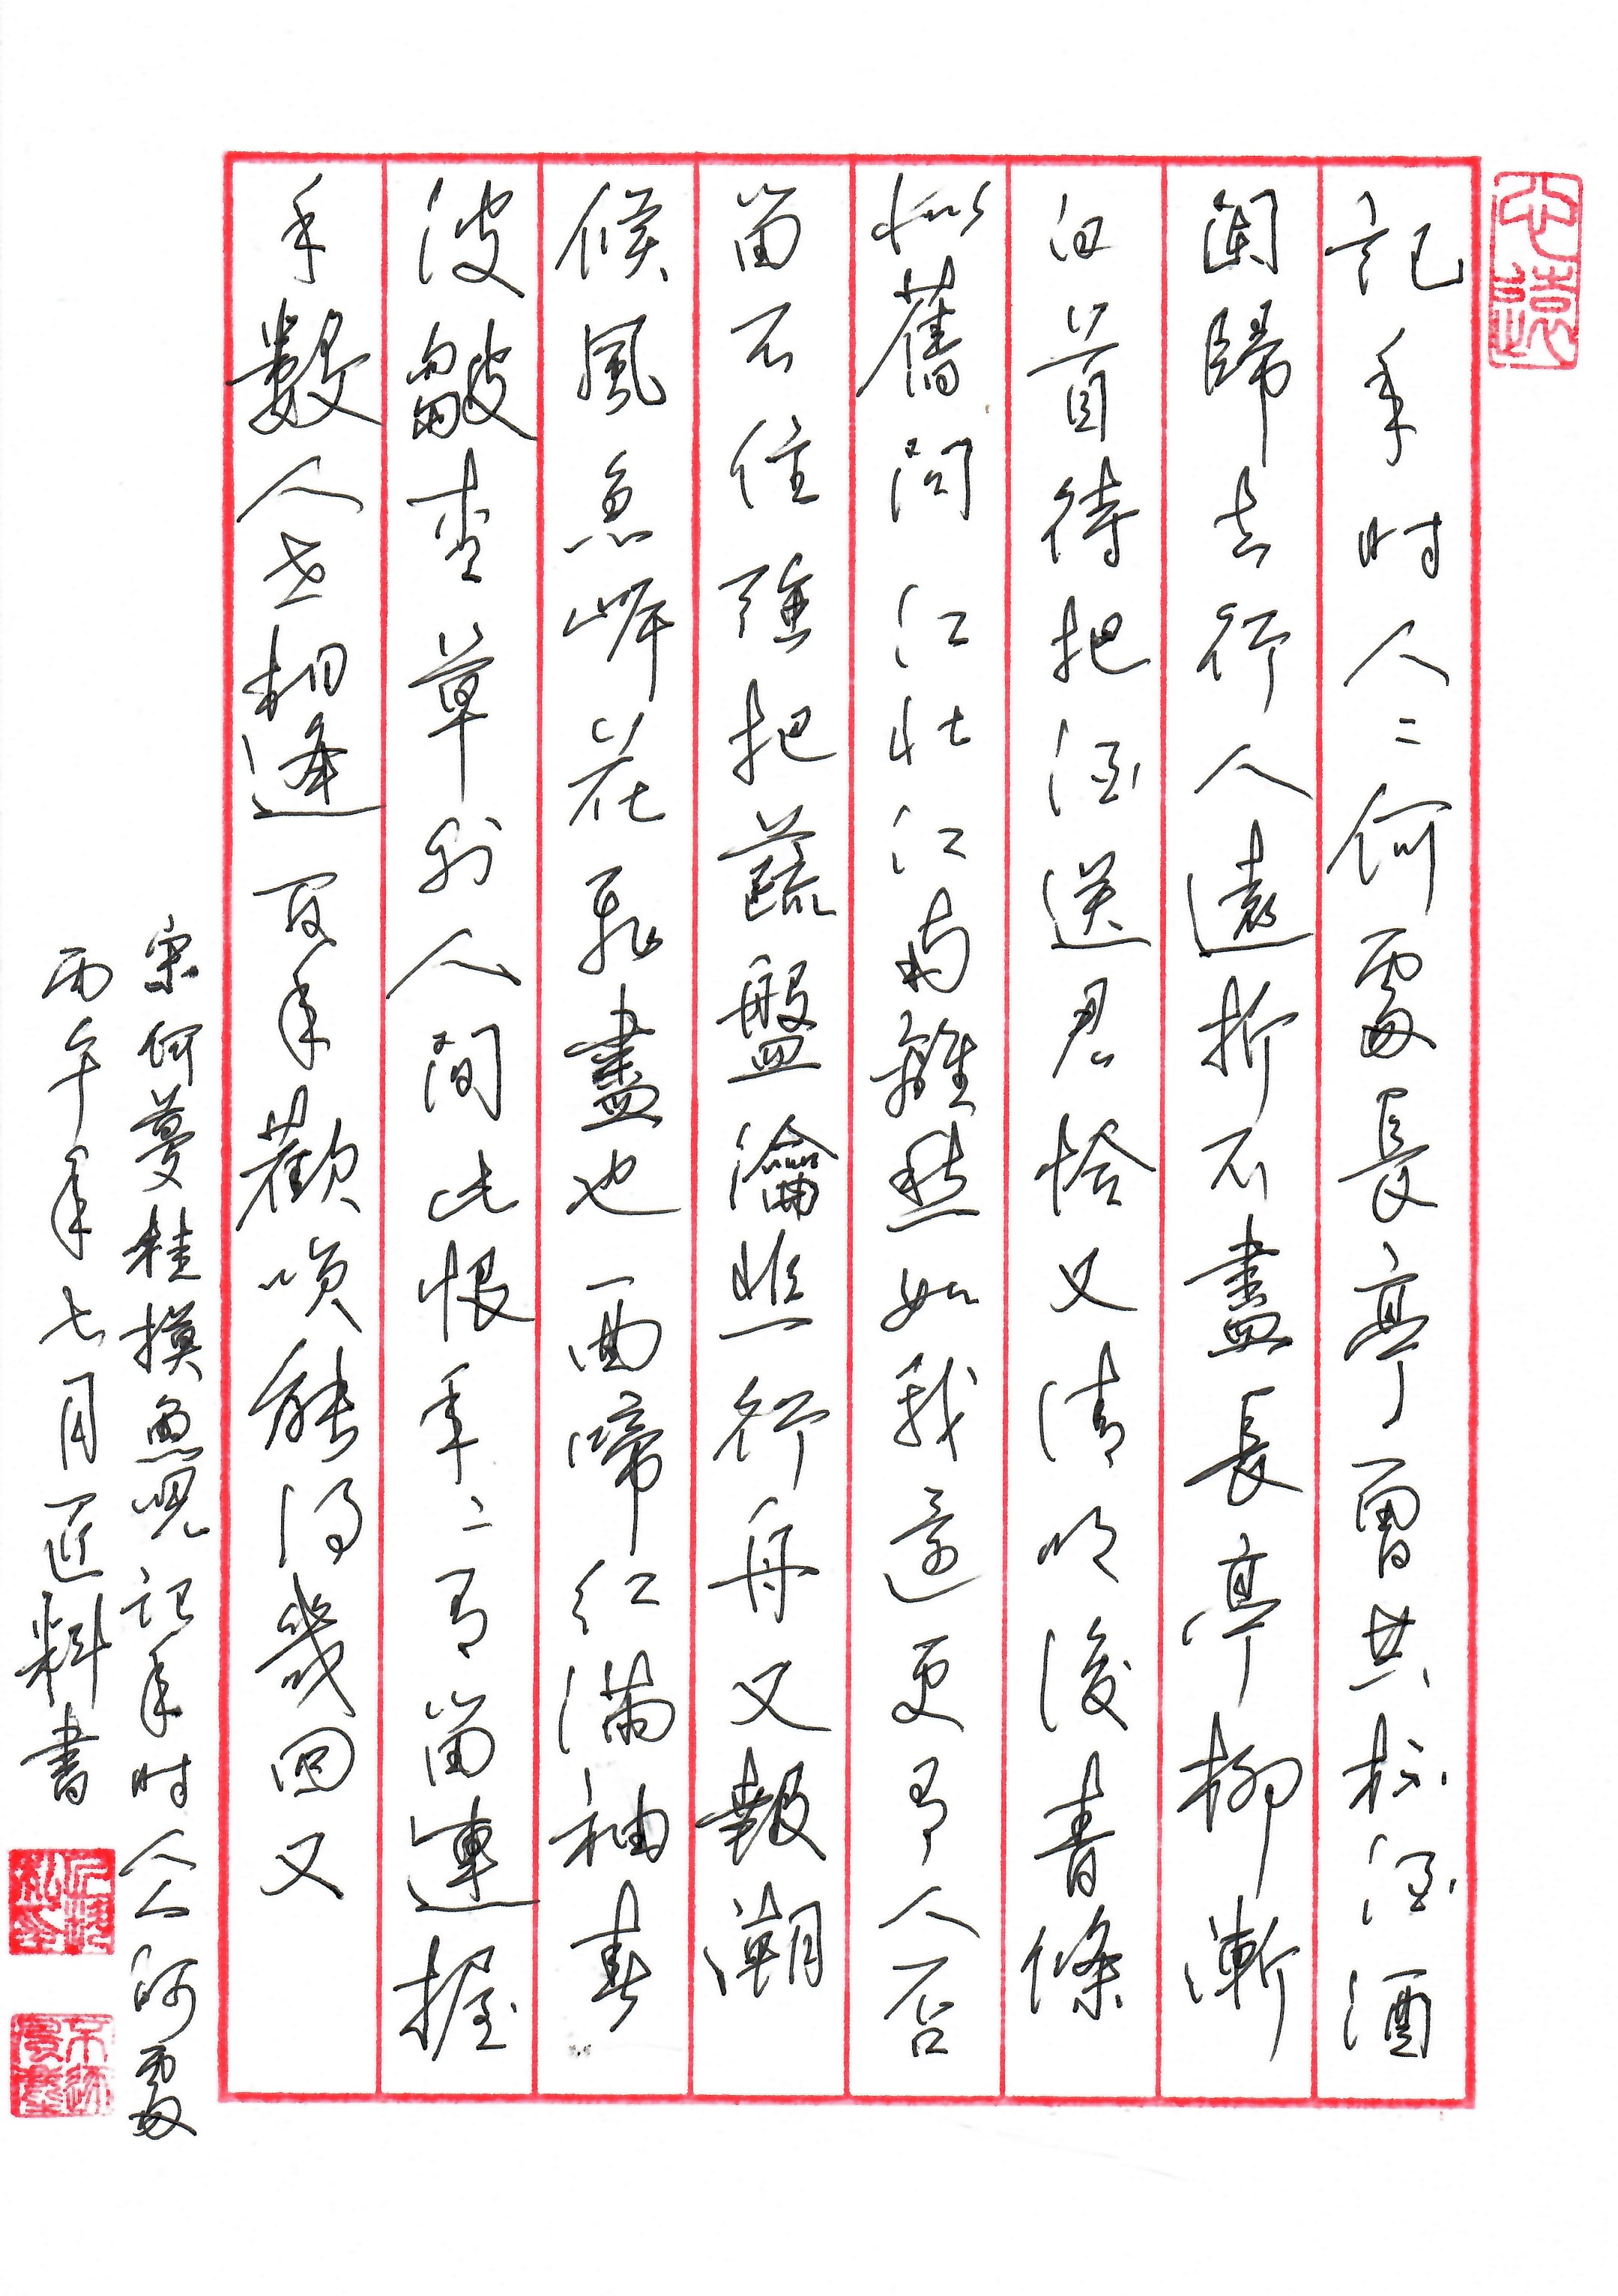 心遠
記年时人〻何處長亭曾共杯酒酒
闌歸去行人遠折不盡長亭柳漸
白首待把酒送君恰又清明後青條
似舊问江北江南離愁如我還更有人否
留不住強把蔬盤瀹韭行舟又報潮
候風急岸花飛盡也一曲啼红滿袖春
波皺青草外人間此恨年〻有留連握
手數人世相逢百年歡笑能得幾回又
宋何夢桂摸魚兒記年时人人何處
丙午年七月匠料書